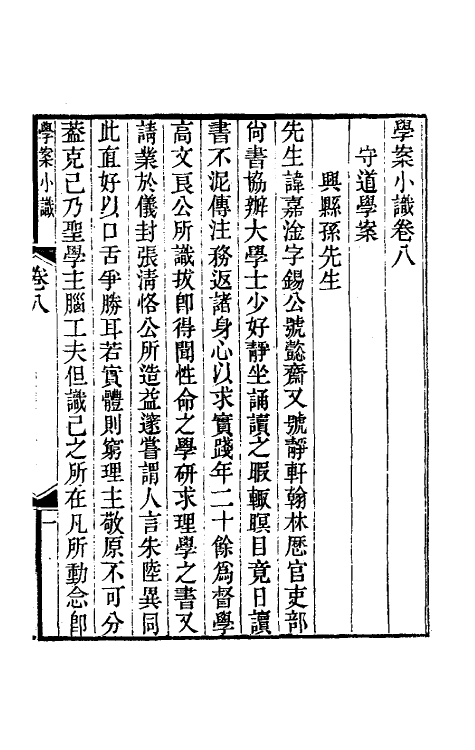 學案小識卷八
守道學案
興縣孫先生
先生諱嘉淦字錫公號懿齋又號靜軒翰林歷官吏部
尙書協辦大學士少好靜坐誦讀之暇輒瞑目竟日讀
書不泥傳注務返諸身心以求實踐年二十餘爲督學
高文良公所識拔卽得聞性命之學硏求理學之書又
請業於儀封張淸恪公所造益邃嘗謂人言朱陸異同
此直好以口舌爭勝耳若實體則窮理主敬原不可分
葢克己乃聖學主腦工夫但識己之所在凡所動念卽
學案小識
卷八
一